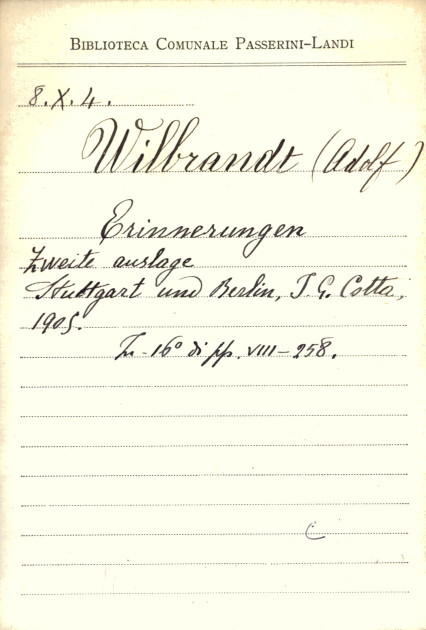 BIBLIOTECA COMUNALE PASSERINI-LANDI
8.X.4.
Wilbrandt (Adolf)
Erinnerungen
Zweite auslage
Stuttgart und Berlin, J. G. Cotta,
1905.
In-16° di pp. VIII-258.
C